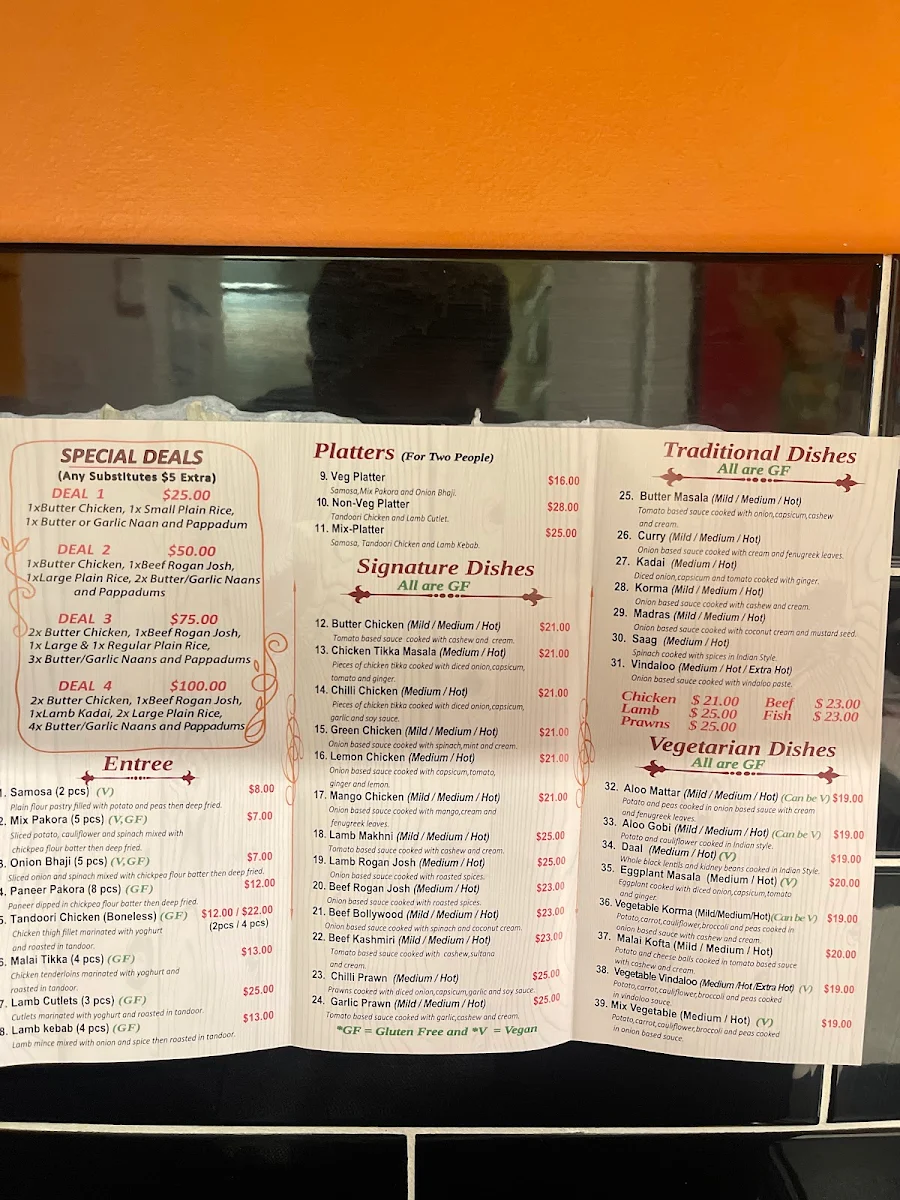 SPECIAL DEALS
(Any Substitutes $5 Extra)
DEAL 1 $25.00
1xButter Chicken, 1x Small Plain Rice,
1x Butter or Garlic Naan and Pappadum
DEAL 2 $50.00
1xButter Chicken, 1xBeef Rogan Josh,
1xLarge Plain Rice, 2x Butter/Garlic Naans
and Pappadums
DEAL 3 $75.00
2x Butter Chicken, 1xBeef Rogan Josh,
1x Large & 1x Regular Plain Rice,
3x Butter/Garlic Naans and Pappadums
DEAL 4 $100.00
2x Butter Chicken, 1xBeef Rogan Josh,
1xLamb Kadai, 2x Large Plain Rice,
4x Butter/Garlic Naans and Pappadums
Entree
1. Samosa (2 pcs) (V) $8.00
Plain flour pastry filled with potato and peas then deep fried.
2. Mix Pakora (5 pcs) (V,GF) $7.00
Sliced potato, cauliflower and spinach mixed with
chickpea flour batter then deep fried.
3. Onion Bhaji (5 pcs) (V,GF) $7.00
Sliced onion and spinach mixed with chickpea flour batter then deep fried.
4. Paneer Pakora (8 pcs) (GF) $12.00
Paneer dipped in chickpea flour batter then deep fried.
5. Tandoori Chicken (Boneless) (GF) $12.00 / $22.00
(2pcs / 4 pcs)
Chicken thigh fillet marinated with yoghurt
and roasted in tandoor.
6. Malai Tikka (4 pcs) (GF) $13.00
Chicken tenderloins marinated with yoghurt and
roasted in tandoor.
7. Lamb Cutlets (3 pcs) (GF) $25.00
Cutlets marinated with yoghurt and roasted in tandoor.
8. Lamb kebab (4 pcs) (GF) $13.00
Lamb mince mixed with onion and spice then roasted in tandoor.
Platters (For Two People)
9. Veg Platter $16.00
Samosa,Mix Pakora and Onion Bhaji.
10. Non-Veg Platter $28.00
Tandoori Chicken and Lamb Cutlet.
11. Mix-Platter $25.00
Samosa, Tandoori Chicken and Lamb Kebab.
Signature Dishes
All are GF
12. Butter Chicken (Mild / Medium / Hot) $21.00
Tomato based sauce cooked with cashew and cream.
13. Chicken Tikka Masala (Medium / Hot) $21.00
Pieces of chicken tikka cooked with diced onion,capsicum,
tomato and ginger.
14. Chilli Chicken (Medium / Hot) $21.00
Pieces of chicken tikka cooked with diced onion,capsicum,
garlic and soy sauce.
15. Green Chicken (Medium / Hot) $21.00
Onion based sauce cooked with spinach,mint and cream.
16. Lemon Chicken (Medium / Hot) $21.00
Onion based sauce cooked with capsicum,tomato,
ginger and lemon.
17. Mango Chicken (Medium / Hot) $21.00
Onion based sauce cooked with mango,cream and
fenugreek leaves.
18. Lamb Makhni (Mild / Medium / Hot) $25.00
Tomato based sauce cooked with cashew and cream.
19. Lamb Rogan Josh (Medium / Hot) $25.00
Onion based sauce cooked with roasted spices.
20. Beef Rogan Josh (Medium / Hot) $23.00
Onion based sauce cooked with roasted spices.
21. Beef Bollywood (Mild / Medium / Hot) $23.00
Onion based sauce cooked with spinach and coconut cream.
22. Beef Kashmiri (Mild / Medium / Hot) $23.00
Tomato based sauce cooked with cashew,sultana
and cream.
23. Chilli Prawn (Medium / Hot) $25.00
Prawns cooked with diced onion,capsicum,garlic and soy sauce.
24. Garlic Prawn (Mild / Medium / Hot) $25.00
Tomato based sauce cooked with garlic,cashew and cream.
*GF = Gluten Free and *V = Vegan
Traditional Dishes
All are GF
25. Butter Masala (Mild / Medium / Hot)
Tomato based sauce cooked with onion,capsicum,cashew
and cream.
26. Curry (Mild / Medium / Hot)
Onion based sauce cooked with cream and fenugreek leaves.
27. Kadai (Medium / Hot)
Diced onion,capsicum and tomato cooked with ginger.
28. Korma (Mild / Medium / Hot)
Onion based sauce cooked with cashew and cream.
29. Madras (Mild / Medium / Hot)
Onion based sauce cooked with coconut cream and mustard seed.
30. Saag (Medium / Hot)
Spinach cooked with spices in Indian Style.
31. Vindaloo (Medium / Hot / Extra Hot)
Onion based sauce cooked with vindaloo paste.
Chicken $ 21.00 Beef $ 23.00
Lamb $ 25.00 Fish $ 23.00
Prawns $ 25.00
Vegetarian Dishes
All are GF
32. Aloo Mattar (Mild / Medium / Hot) (Can be V) $19.00
Potato and peas cooked in onion based sauce with cream
and fenugreek leaves.
33. Aloo Gobi (Mild / Medium / Hot) (Can be V) $19.00
Potato and cauliflower cooked in Indian style.
34. Daal (Medium / Hot) (V) $19.00
Whole black lentils and kidney beans cooked in Indian Style.
35. Eggplant Masala (Medium / Hot) (V) $20.00
Eggplant cooked with diced onion,capsicum,tomato
and ginger.
36. Vegetable Korma (Mild/Medium/Hot)(Can be V) $19.00
Potato,carrot,cauliflower,broccoli and peas cooked in
onion based sauce with cashew and cream.
37. Malai Kofta (Mild / Medium / Hot) $20.00
Potato and cheese balls cooked in tomato based sauce
with cashew and cream.
38. Vegetable Vindaloo (Medium /Hot/Extra Hot) (V) $19.00
Potato,carrot,cauliflower,broccoli and peas cooked
in vindaloo sauce.
39. Mix Vegetable (Medium / Hot) (V) $19.00
Potato,carrot,cauliflower,broccoli and peas cooked
in onion based sauce.